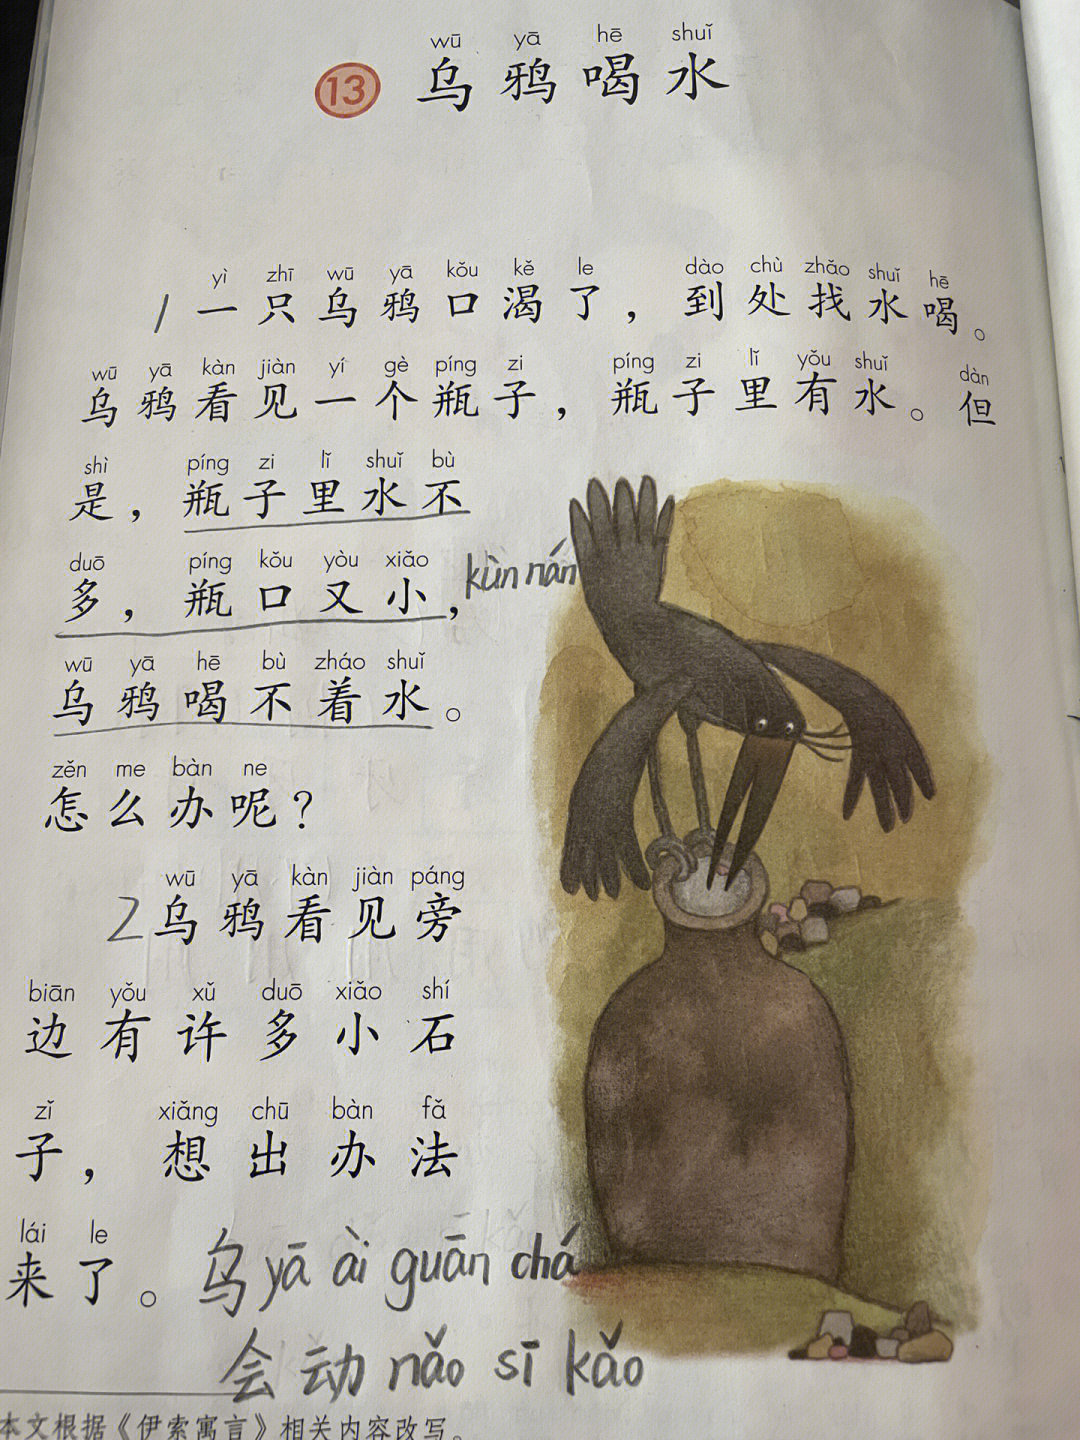 wū yā hē shuǐ
13 乌鸦喝水
yì zhī wū yā kǒu kě le dào chù zhǎo shuǐ hē
1 一只乌鸦口渴了，到处找水喝。
wū yā kàn jiàn yí gè píng zi píng zi lǐ yǒu shuǐ dàn
乌鸦看见一个瓶子，瓶子里有水。但
shì píng zi lǐ shuǐ bù
是，瓶子里水不
duō píng kǒu yòu xiǎo
多，瓶口又小，kùn nán
wū yā hē bù zháo shuǐ
乌鸦喝不着水。
zěn me bàn ne
怎么办呢？
wū yā kàn jiàn páng
2 乌鸦看见旁
biān yǒu xǔ duō xiǎo shí
边有许多小石
zǐ xiǎng chū bàn fǎ
子，想出办法
lái le
来了。乌 yā ài guān chá
会动 nǎo sī kǎo
本文根据《伊索寓言》相关内容改写。